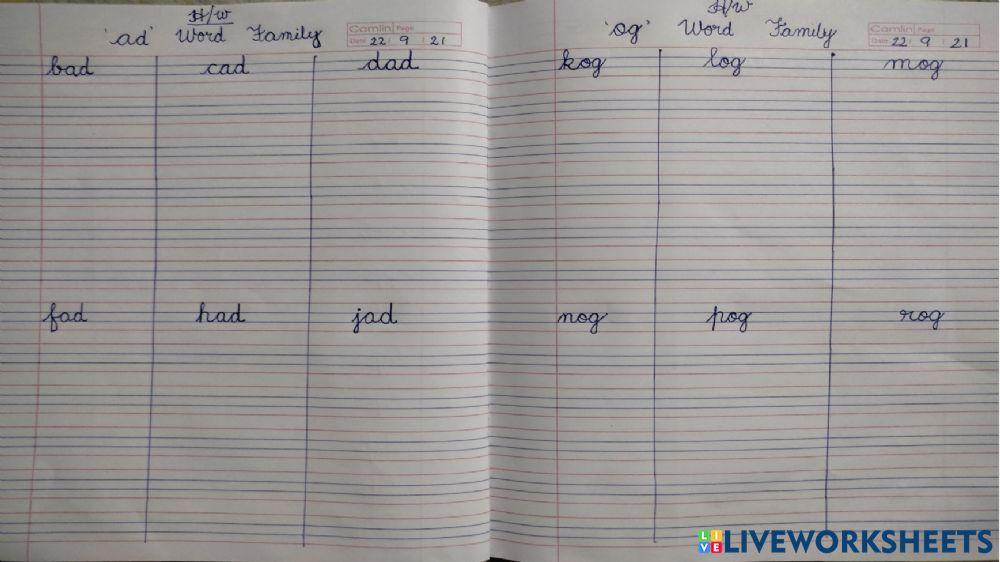 H/W
'ad' Word Family
Camlin Page
Date 22 9 21
bad cad dad
fad had jad
H/W
'og' Word Family
Camlin Page
Date 22 9 21
kog log mog
nog pog rog
LIVE LIVEWORKSHEETS